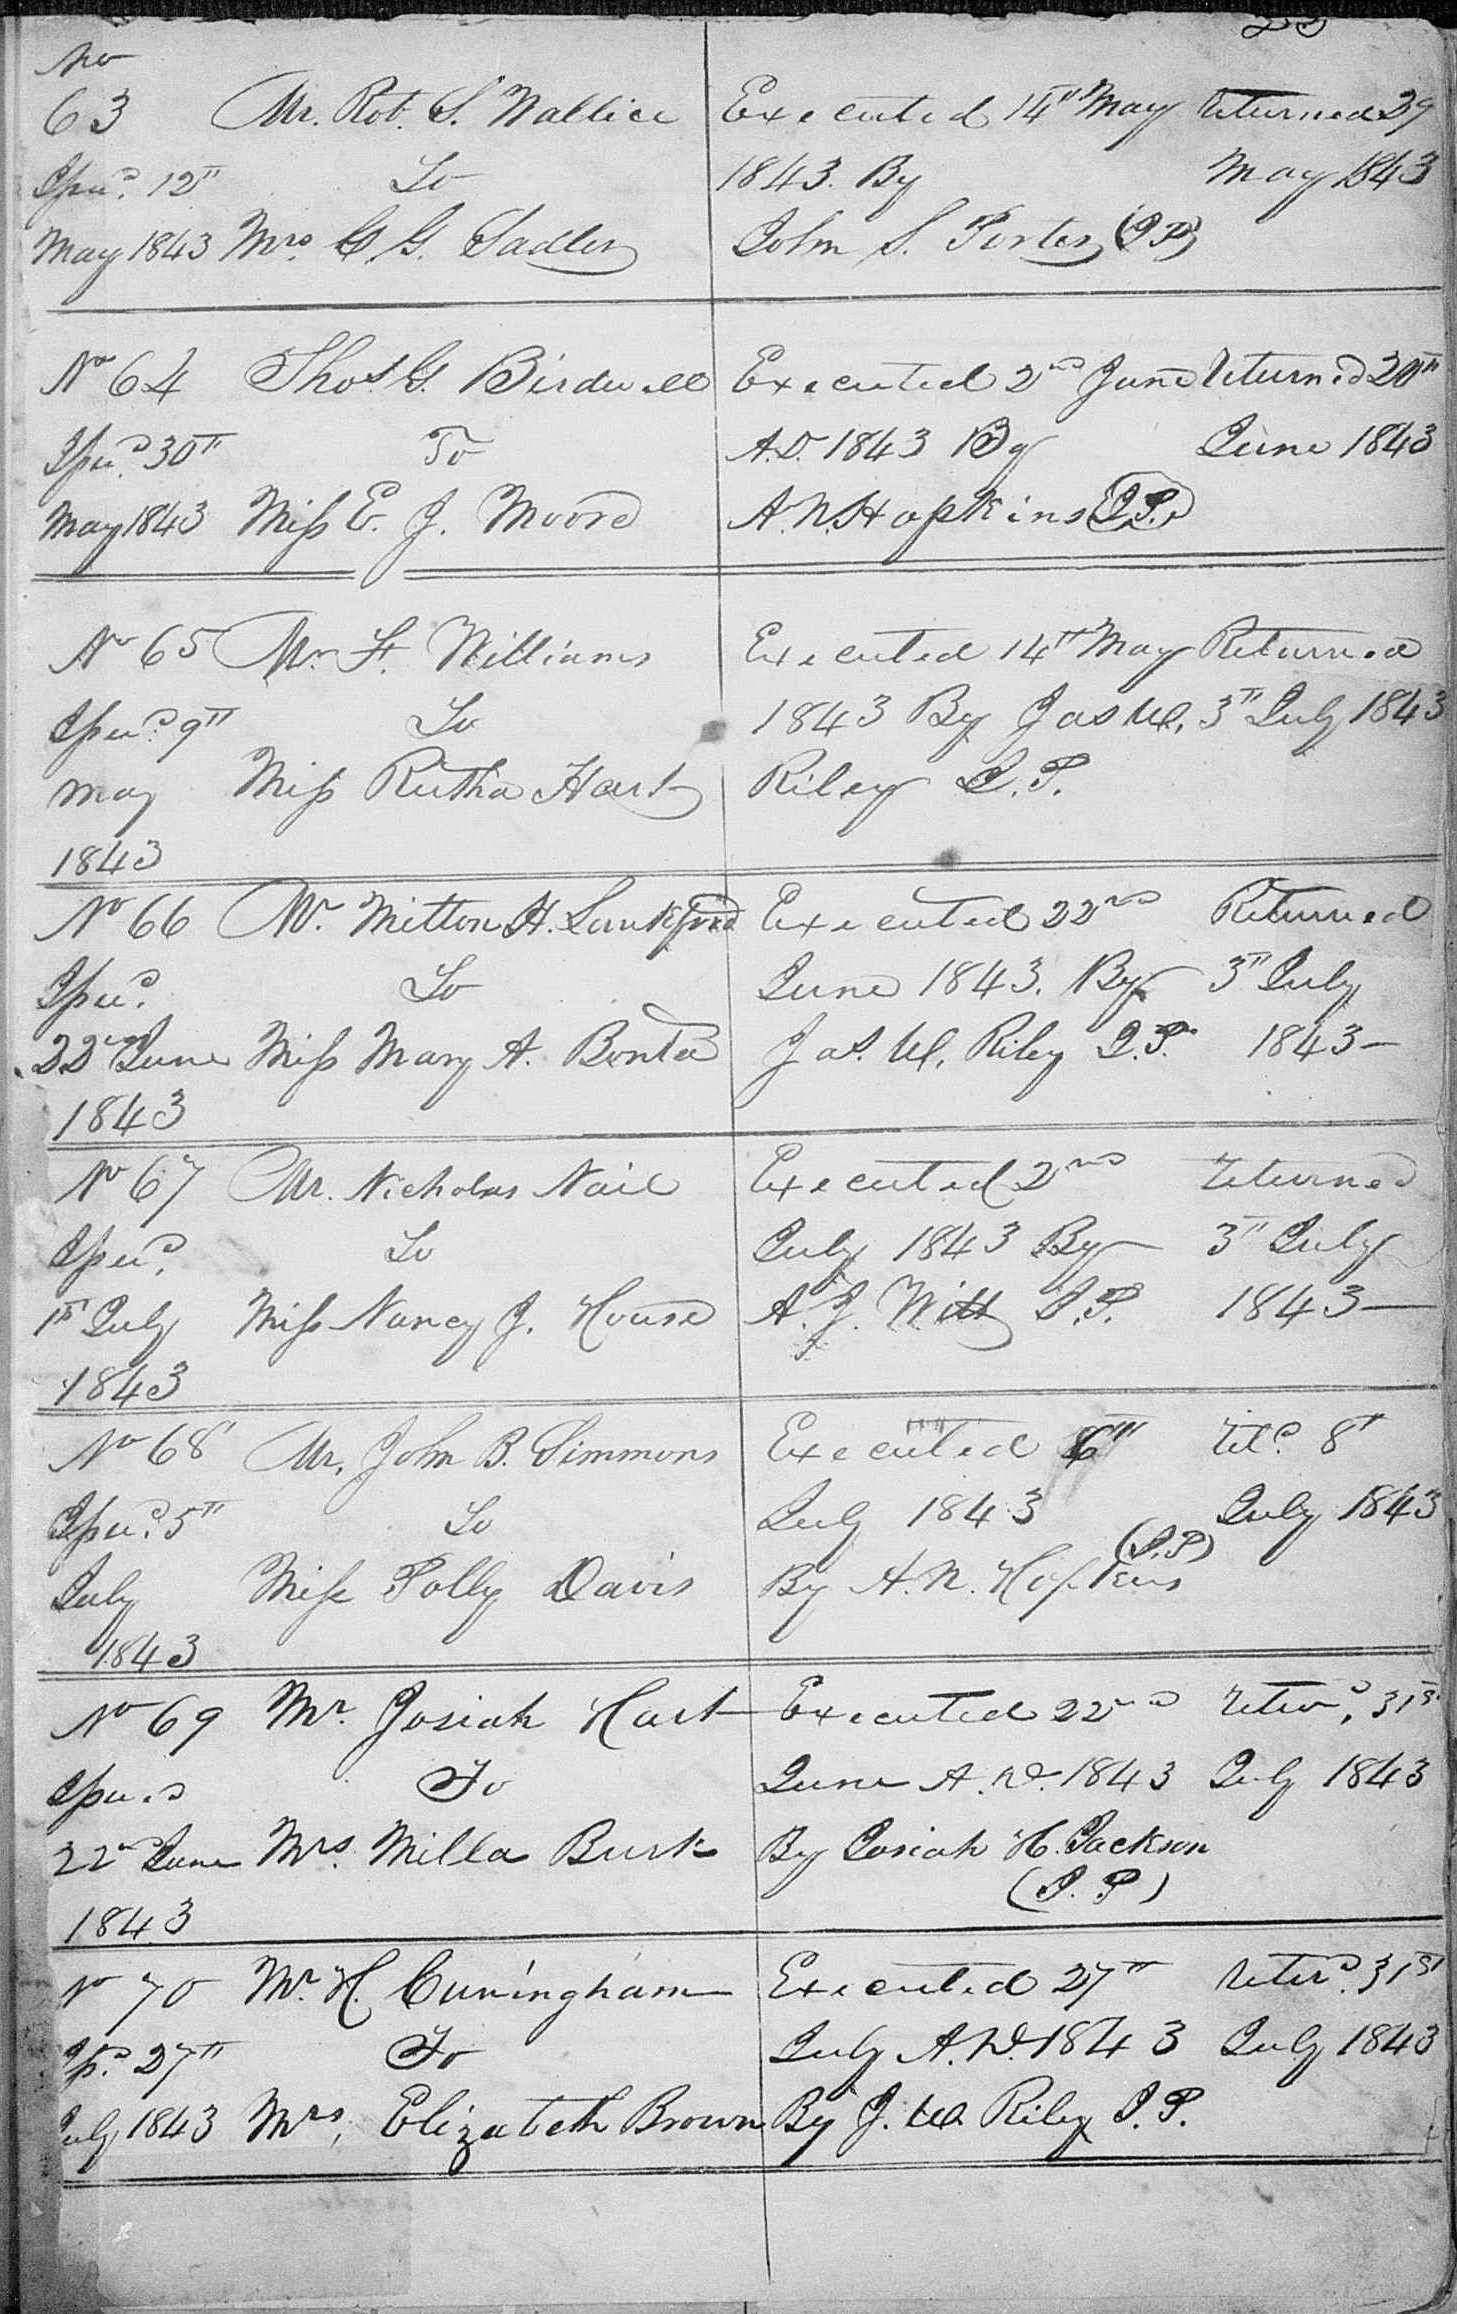 23
No
63 Mr. Rob. S. Wallice Executed 14th May returned 29
Issud. 12th To 1843. By May 1843
May 1843 Mrs. G. G. Sadler John S. Porter (J P)
No 64 Thos G. Birdwell Executed 2nd June returned 20th
Issud. 30th To A.D. 1843 By June 1843
May 1843 Miss E. J. Moore A. N. Hopkins J.P.
No 65 Mr. F. Williams Executed 14th May Returned
Issud. 9th To 1843 By Jas W. 3th July 1843
may Miss Rutha Hart Riley J.P.
1843
No 66 Mr. Mitton H. Lankford Executed 22nd Returned
Issud. To June 1843. By 3th July
22nd June Miss Mary A. Jas. W. Riley J.P. 1843 —
1843
No 67 Mr. Nicholas Nail Executed 2nd returned
Issud. To July 1843 By 3th July
1st July Miss Nancy J. House A. J. Witt J.P. 1843 —
1843
No 68 Mr. John B. Simmons Executed 6th retd. 8th
Issud. 5th To July 1843 July 1843
July Miss Polly Davis By A. N. Hopkins (J.P)
1843
No 69 Mr. Josiah Hart Executed 22nd retud. 31st
Issud To June A.D. 1843 July 1843
22nd June Mrs. Milla Burk By Josiah H. Jackson
(J.P)
1843
No 70 Mr. H. Cuningham Executed 27th retud. 31st
Isd. 27th To July A.D. 1843 July 1843
July 1843 Mrs. Elizabeth Brown By J. W. Riley J.P.